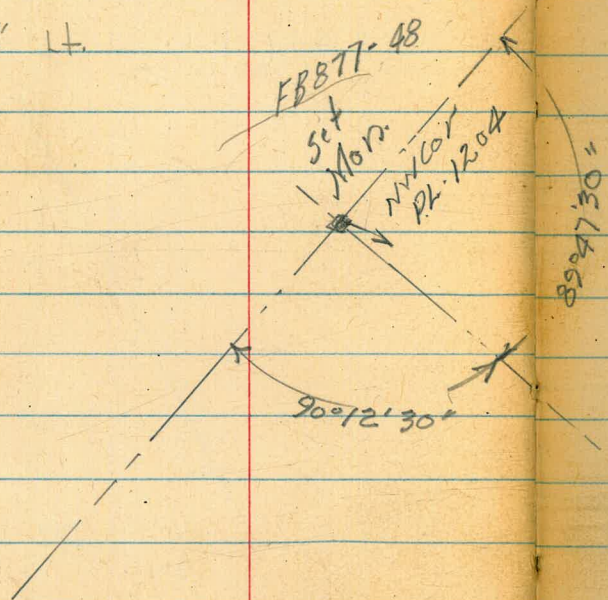 " Lt.
FB877-48
Set
Mon.
NW Cor
P.L. 1204
89°47'30"
90°12'30"